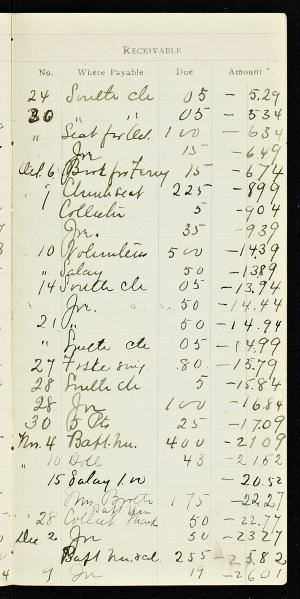 RECEIVABLE
No. Where Payable Due Amount
24 South ch 05 - 5.29
30 " " 05 - 534
" Seat for 1 00 - 634
Jnr 15 - 649
Oct 6 Book for Fenny 15 - 674
9 Church seat 225 - 899
Collectn 5 - 904
Jnr. 35 - 939
10 Volunteers 500 - 1439
" Salay 50 - 1389
14 South ch 05 - 13.94
Jnr. 50 - 14.44
21 " 50 - 14.94
" South ch 05 - 14.99
27 Foske sing. .80. - 15.79
28 South ch 5 - 15.84
28 Jnr 1 00 - 16.84
30 5 Pts 25 - 17.09
Nov. 4 Bapt. hu. 400 - 21.09
" 10 Doll 43 - 21.52
15 Salay 1.00 - 20.52
1 75 - 22.27
28 Collect 50 - 22.77
Dec 2 Jnr 50 - 2327
Bapt hu sch. 255 - 25.82
9 Jnr 19 - 2601